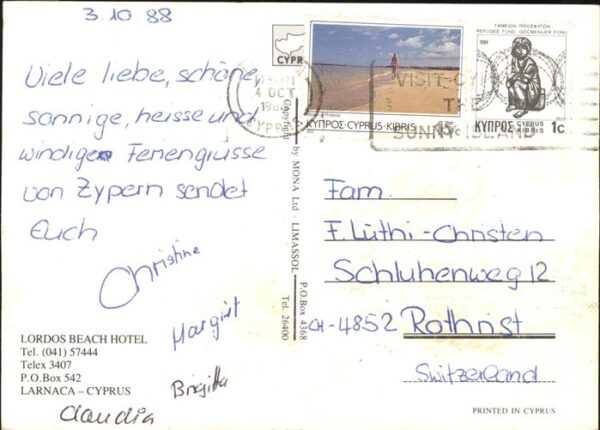 3 10 88
Viele liebe, schöne,
sonnige, heisse und
windige Feriengrüsse
von Zypern sendet
Euch
Christine
Margrit
Brigitta
Claudia
LORDOS BEACH HOTEL
Tel. (041) 57444
Telex 3407
P.O.Box 542
LARNACA – CYPRUS
Copyright by MONA Ltd - LIMASSOL P.O.Box 4368 Tel. 26400
CYPR
4 OCT
ΚΥΠΡΟΣ·CYPRUS·KIBRIS 15c
VISIT-CY
THE
SUNNY ISLAND
ΤΑΜΕΙΟΝ ΠΡΟΣΦΥΓΩΝ
REFUGEE FUND GÖÇMENLER FONU
ΚΥΠΡΟΣ CYPRUS KIBRIS 1c
Fam.
F. Lüthi-Christen
Schluhenweg 12
CH-4852 Rothrist
Switzerland
PRINTED IN CYPRUS